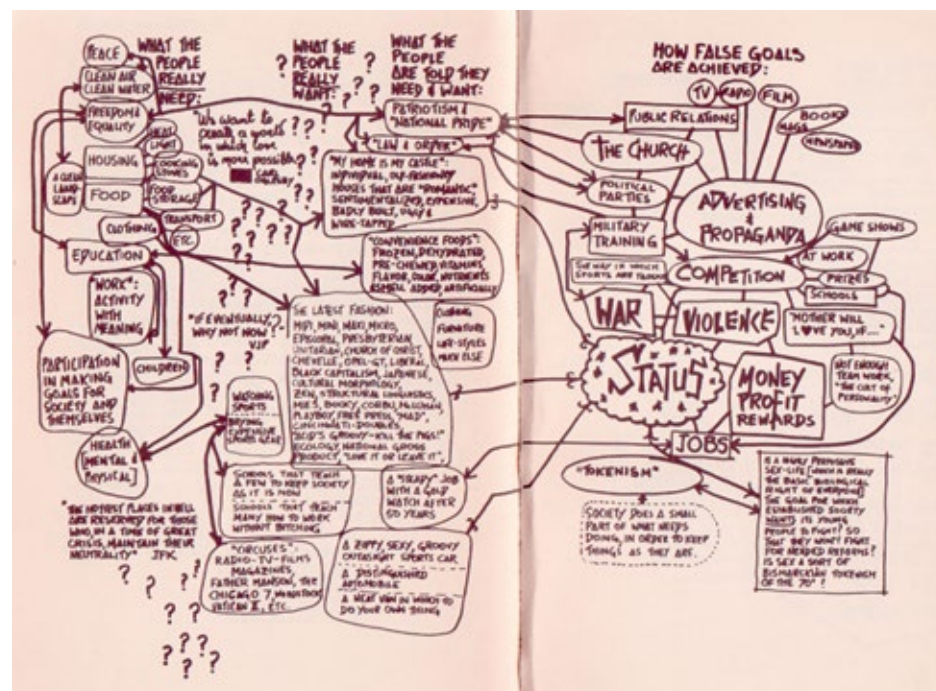 PEACE
CLEAN AIR
CLEAN WATER
FREEDOM &
EQUALITY
HOUSING
HEAT
LIGHT
COOKING
STOVES
FOOD
FOOD
STORAGE
A CLEAN
LAND-
SCAPE
CLOTHING
TRANSPORT
ETC.
EDUCATION
"WORK":
ACTIVITY
WITH
MEANING
PARTICIPATION
IN MAKING
GOALS FOR
SOCIETY AND
THEMSELVES
CHILDREN
HEALTH
[MENTAL &
PHYSICAL]
"THE HOTTEST PLACES IN HELL
ARE RESERVED FOR THOSE
WHO, IN A TIME OF GREAT
CRISIS, MAINTAIN THEIR
NEUTRALITY" JFK
WHAT THE
PEOPLE
REALLY
NEED:
WHAT THE
PEOPLE
REALLY
WANT:
"We want to
create a world
in which love
is more possible"
CARL
OGLESBY
"IF EVENTUALLY,
WHY NOT NOW?"
WHAT THE
PEOPLE
ARE TOLD THEY
NEED & WANT:
PATRIOTISM &
"NATIONAL PRIDE"
"LAW & ORDER"
"MY HOME IS MY CASTLE":
INDIVIDUAL, OLD-FASHIONED
HOUSES THAT ARE "ROMANTIC"
SENTIMENTALIZED, EXPENSIVE,
BADLY BUILT, UGLY &
WIRE-TAPPED.
"CONVENIENCE FOODS":
FROZEN, DEHYDRATED,
PRE-CHEWED, VITAMINS,
FLAVOR, COLOR, NUTRIENTS
& SMELL ADDED, ARTIFICIALLY
THE LATEST FASHION:
MIDI, MINI, MAXI, MICRO,
EPISCOPAL, PRESBYTERIAN,
UNITARIAN, CHURCH OF CHRIST,
CHEVELLE, OPEL-GT, LIBERAL,
BLACK CAPITALISM, JAPANESE,
CULTURAL MORPHOLOGY,
ZEN, STRUCTURAL LINGUISTICS,
MIES, BUCKY, CORBU, McLUHAN,
PLAYBOY, FREE PRESS, "MAD",
CINCINNATI-DOUBLES,
GROOVY - KILL THE PIGS!"
ECOLOGY, NATIONAL GROSS
PRODUCT, "LOVE IT OR LEAVE IT",
CLOTHING
FURNITURE
LIFE-STYLES
MUCH ELSE
WATCHING
SPORTS
BUYING
EXPENSIVE
SPORTS GEAR
SCHOOLS THAT TEACH
A FEW TO KEEP SOCIETY
AS IT IS NOW
SCHOOLS THAT TEACH
MANY HOW TO WORK
WITHOUT BITCHING
A "STEADY" JOB
WITH A GOLD
WATCH AFTER
50 YEARS
"CIRCUSES":
RADIO-TV-FILMS
MAGAZINES,
FATHER MANSON, THE
CHICAGO 7, WOODSTOCK
VATICAN II, ETC.
A ZIPPY, SEXY, GROOVY
OUTASIGHT SPORTS CAR
A DISTINGUISHED
AUTOMOBILE
A NEAT VAN IN WHICH TO
DO YOUR OWN THING
HOW FALSE GOALS
ARE ACHIEVED:
TV
RADIO
FILM
BOOKS
MAGS
NEWSPAPER
PUBLIC RELATIONS
THE CHURCH
POLITICAL
PARTIES
ADVERTISING
&
PROPAGANDA
MILITARY
TRAINING
GAME SHOWS
AT WORK
THE WAY IN WHICH
SPORTS ARE TAUGHT
COMPETITION
PRIZES
SCHOOLS
WAR
VIOLENCE
"MOTHER WILL
LOVE YOU, IF...."
STATUS
MONEY
PROFIT
REWARDS
NOT ENOUGH
TEAM WORK.
"THE CULT OF
PERSONALITY"
JOBS
"TOKENISM"
SOCIETY DOES A SMALL
PART OF WHAT NEEDS
DOING, IN ORDER TO KEEP
THINGS AS THEY ARE.
IS A HIGHLY PERMISSIVE
SEX-LIFE [WHICH IS REALLY
THE BASIC BIOLOGICAL
RIGHT OF EVERYONE]
THE GOAL FOR WHICH
ESTABLISHED SOCIETY
WANTS ITS YOUNG
PEOPLE TO FIGHT? SO
THAT THEY WON'T FIGHT
FOR NEEDED REFORMS?
IS SEX A SORT OF
BISMARCKIAN TOKENISM
OF THE 70's?